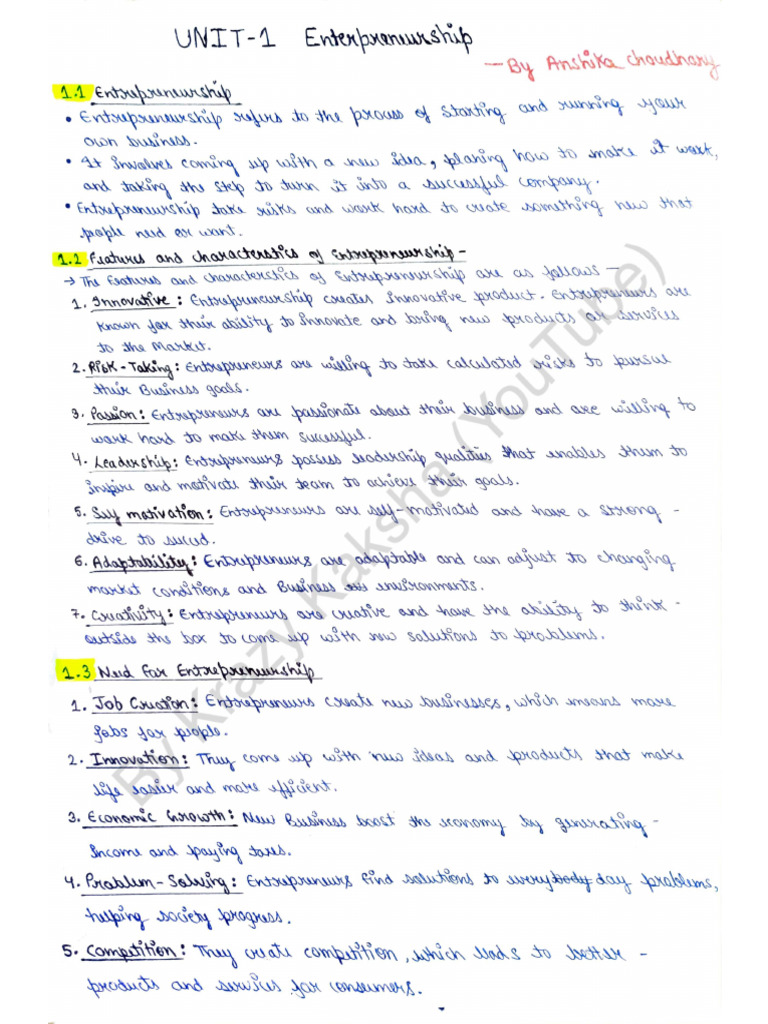 UNIT-1 Enterpreneurship
—By Anshika choudhary
1.1 Entrepreneurship
• Entrepreneurship refers to the process of starting and running your
own business.
• It involves coming up with a new idea, planing how to make it work,
and taking the step to turn it into a successful company.
• Entrepreneurship take risks and work hard to create something new that
people need or want.
1.2 Features and characterstics of Entrepreneurship -
→ The features and characterstics of Entrepreneurship are as follows —
1. Innovative: Entrepreneurship creates Innovative product. Entrepreneurs are
known for their ability to innovate and bring new products or services
to the Market.
2. Risk-Taking: Entrepreneurs are willing to take calculated risks to pursue
their Business goals.
3. Passion: Entrepreneurs are passionate about their business and are willing to
work hard to make them sucessful.
4. Leadership: Entrepreneurs possess leadership qualities that enables them to
inspire and motivate their team to achieve their goals.
5. Self motivation: Entrepreneurs are self-motivated and have a strong -
drive to succed.
6. Adaptability: Entrepreneurs are adaptable and can adjust to changing
market conditions and Business environments.
7. Creativity: Entrepreneurs are creative and have the ability to think -
outside the box to come up with new solutions to problems.
1.3 Need for Entrepreneurship
1. Job Creation: Entrepreneurs create new businesses, which means more
jobs for people.
2. Innovation: They come up with new ideas and products that make
life easier and more efficient.
3. Economic Growth: New Business boost the economy by generating -
Income and paying taxes.
4. Problem-Solving: Entrepreneurs find solutions to everybody day problems,
helping society progress.
5. Competition: They create competition, which leads to better -
products and services for consumers.
By Krazy Kaksha (YouTube)